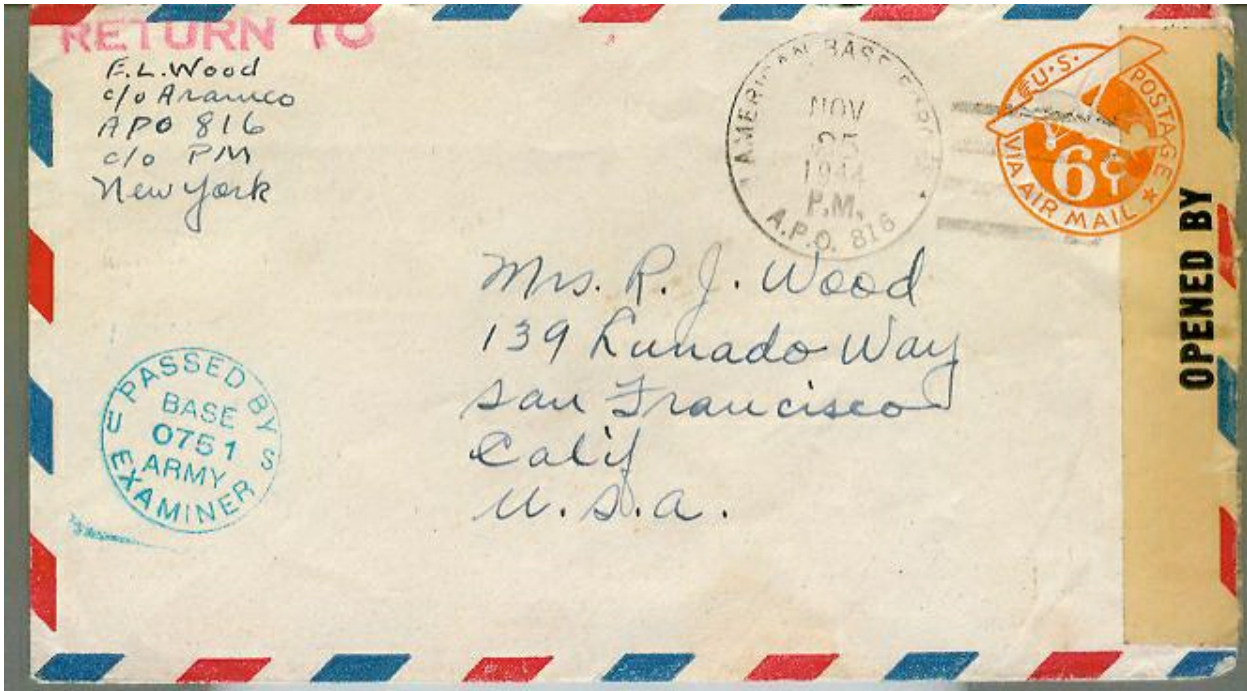 RETURN TO
E.L. Wood
c/o Aramco
APO 816
c/o PM
New York
AMERICAN BASE
NOV
25
1944
P.M.
A.P.O. 816
U.S. POSTAGE
VIA AIR MAIL
6¢
OPENED BY
Mrs. R. J. Wood
139 Lunado Way
San Francisco
Calif
U.S.A.
PASSED BY
U S
BASE
0751
ARMY
EXAMINER